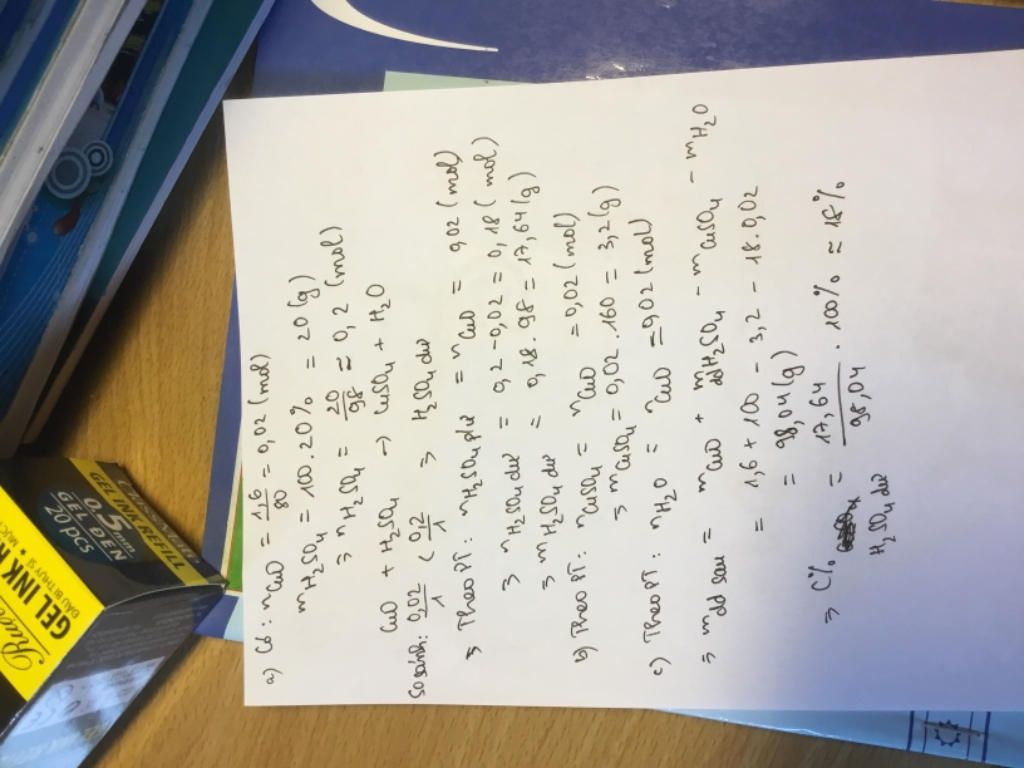 a) Có : nCuO = 1,6/80 = 0,02 (mol)
mH2SO4 = 100.20% = 20 (g)
⇒ nH2SO4 = 20/98 ≈ 0,2 (mol)
CuO + H2SO4 → CuSO4 + H2O
So sánh: 0,02/1 < 0,2/1 ⇒ H2SO4 dư
⇒ Theo PT: nH2SO4 pứ = nCuO = 0,02 (mol)
⇒ nH2SO4 dư = 0,2 - 0,02 = 0,18 (mol)
⇒ mH2SO4 dư = 0,18.98 = 17,64 (g)
b) Theo PT: nCuSO4 = nCuO = 0,02 (mol)
⇒ mCuSO4 = 0,02.160 = 3,2 (g)
c) Theo PT: nH2O = nCuO = 0,02 (mol)
⇒ mdd sau = mCuO + mddH2SO4 - mCuSO4 - mH2O
= 1,6 + 100 - 3,2 - 18.0,02
= 98,04 (g)
⇒ C% H2SO4 dư = 17,64/98,04 . 100% ≈ 18%
GEL INK
DẦU BI THỤY SĨ
GEL INK REFILL
0.5mm
GEL ĐEN
20 pcs